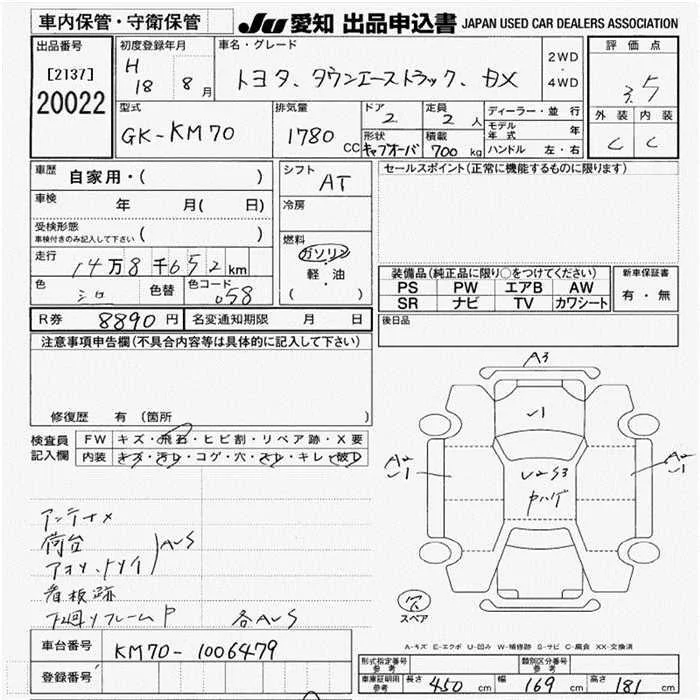 車内保管・守衛保管
JU 愛知 出品申込書 JAPAN USED CAR DEALERS ASSOCIATION
出品番号
[2137]
20022
初度登録年月
H 18 8月
車名・グレード
トヨタ、タウンエーストラック、DX
2WD
・
4WD
評価点
3.5
外装 内装
C C
型式
GK-KM70
排気量
1780 CC
ドア
2
定員
2人
形状
キャブオーバ
積載
700kg
ディーラー・並行
モデル年式 年
ハンドル 左・右
車歴
自家用・( )
車検
年 月( 日)
受検形態
車検付きのみ記入して下さい ( )
走行
14万8千652km
色
シロ
色替
色コード
058
シフト
AT
冷房
燃料
ガソリン
・
軽・油
( )
セールスポイント(正常に機能するものに限ります)
装備品(純正品に限り○をつけてください)
PS PW エアB AW
SR ナビ TV カワシート
新車保証書
有・無
R券 8890円
名変通知期限 月 日
後日品
注意事項申告欄(不具合内容等は具体的に記入して下さい)
修復歴 有(箇所 )
検査員
記入欄
FW キズ・飛石・ヒビ割・リペア跡・X要
内装 キズ・汚レ・コゲ・穴・スレ・キレ・破レ
アンテナメ
荷台
アオリ、トリイ
AUS
看板跡
下廻リフレームP 各AUS
A3
U1
A2
U1
U2S3
ヤハゲ
A2
U1
穴
スペア
A-キズ E-エクボ U-凹み W-補修跡 S-サビ C-腐食 XX-交換済
車台番号
KM70-1006479
登録番号
形式指定番号
参考
類別区分番号
参考
車庫証明用
参考
長さ 450 cm
幅 169 cm
高さ 181 cm